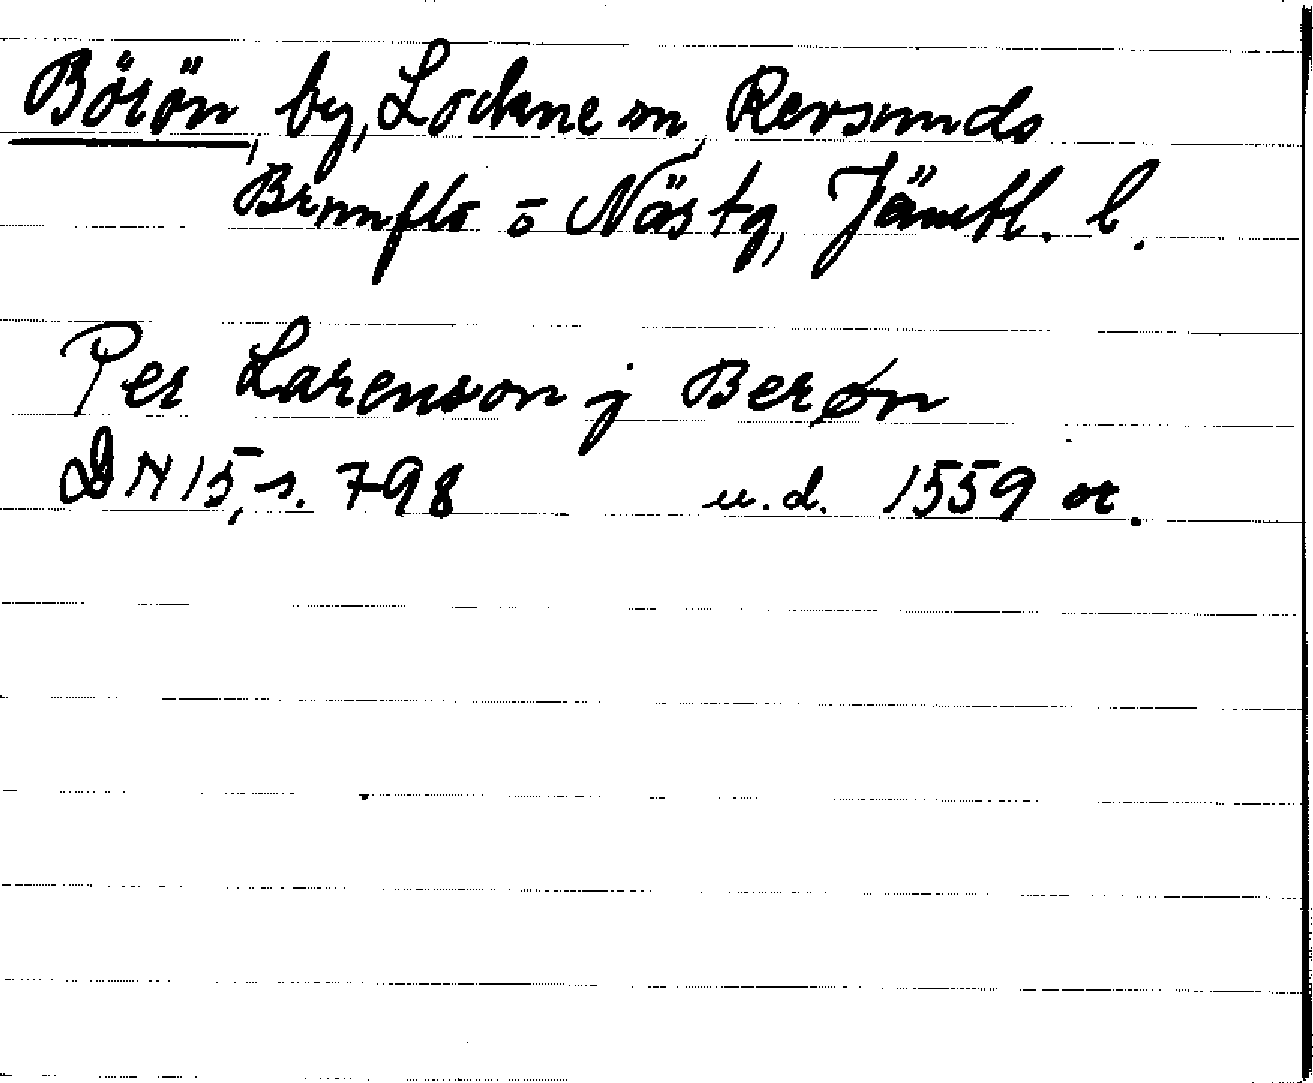 Börön, by, Lockne sn, Revsunds,
Brunflo o Näs tg, Jämtl. l.
Per Larenson j Berøn
DN 15, s. 798 u.d. 1559 or.